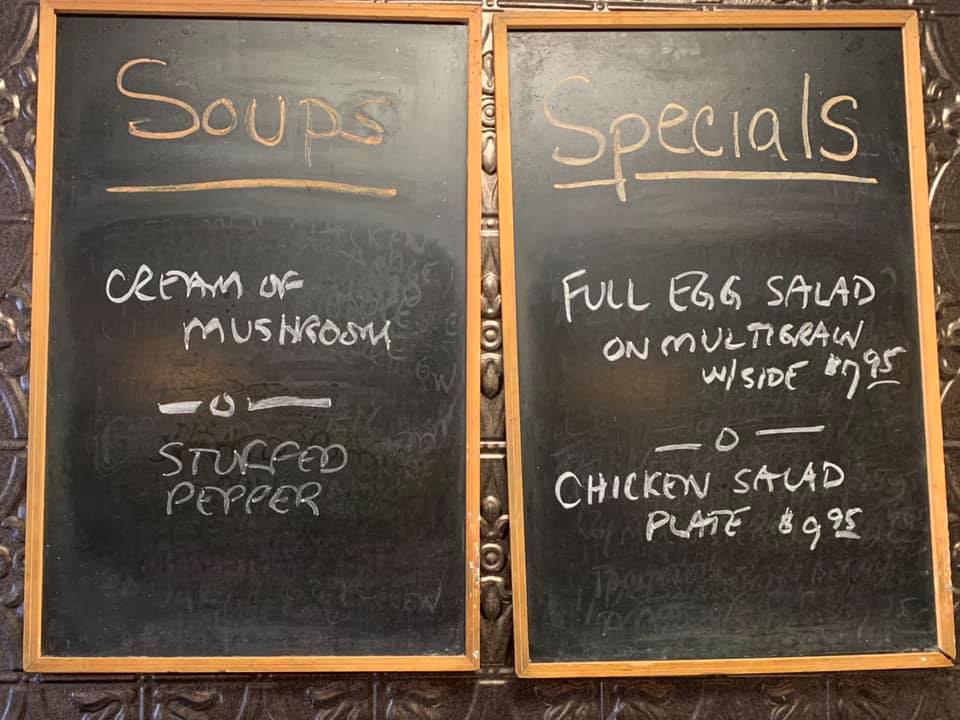 Soups
CREAM OF
MUSHROOM
— O —
STUFFED
PEPPER
Specials
FULL EGG SALAD
ON MULTIGRAIN
W/SIDE $7 95
— O —
CHICKEN SALAD
PLATE $9 95